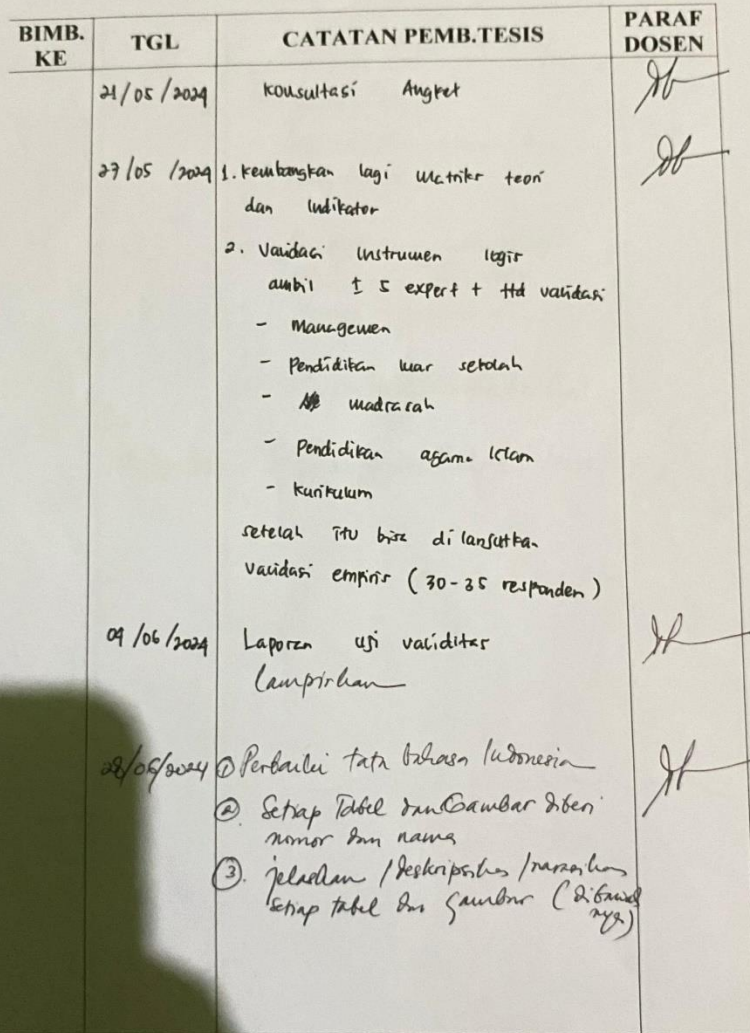 BIMB. KE
TGL
CATATAN PEMB.TESIS
PARAF DOSEN
21/05/2024 Konsultasi Angket
27/05/2024 1. Kembangkan lagi Matriks teori
dan Indikator
2. Validasi Instrumen logis
ambil ± 5 expert + ttd validasi
- Managemen
- Pendidikan luar sekolah
- madrasah
- Pendidikan agama Islam
- Kurikulum
setelah itu bisa di lanjutkan
validasi empiris (30-35 responden)
09/06/2024 Laporan uji validitas
lampirkan
28/06/2024 ① Perbaiki tata bahasa Indonesia
②. Setiap Tabel dan Gambar diberi
nomor dan nama
③. jelaskan / deskripsikan / narasikan
setiap tabel dan Gambar (dibawah
nya)